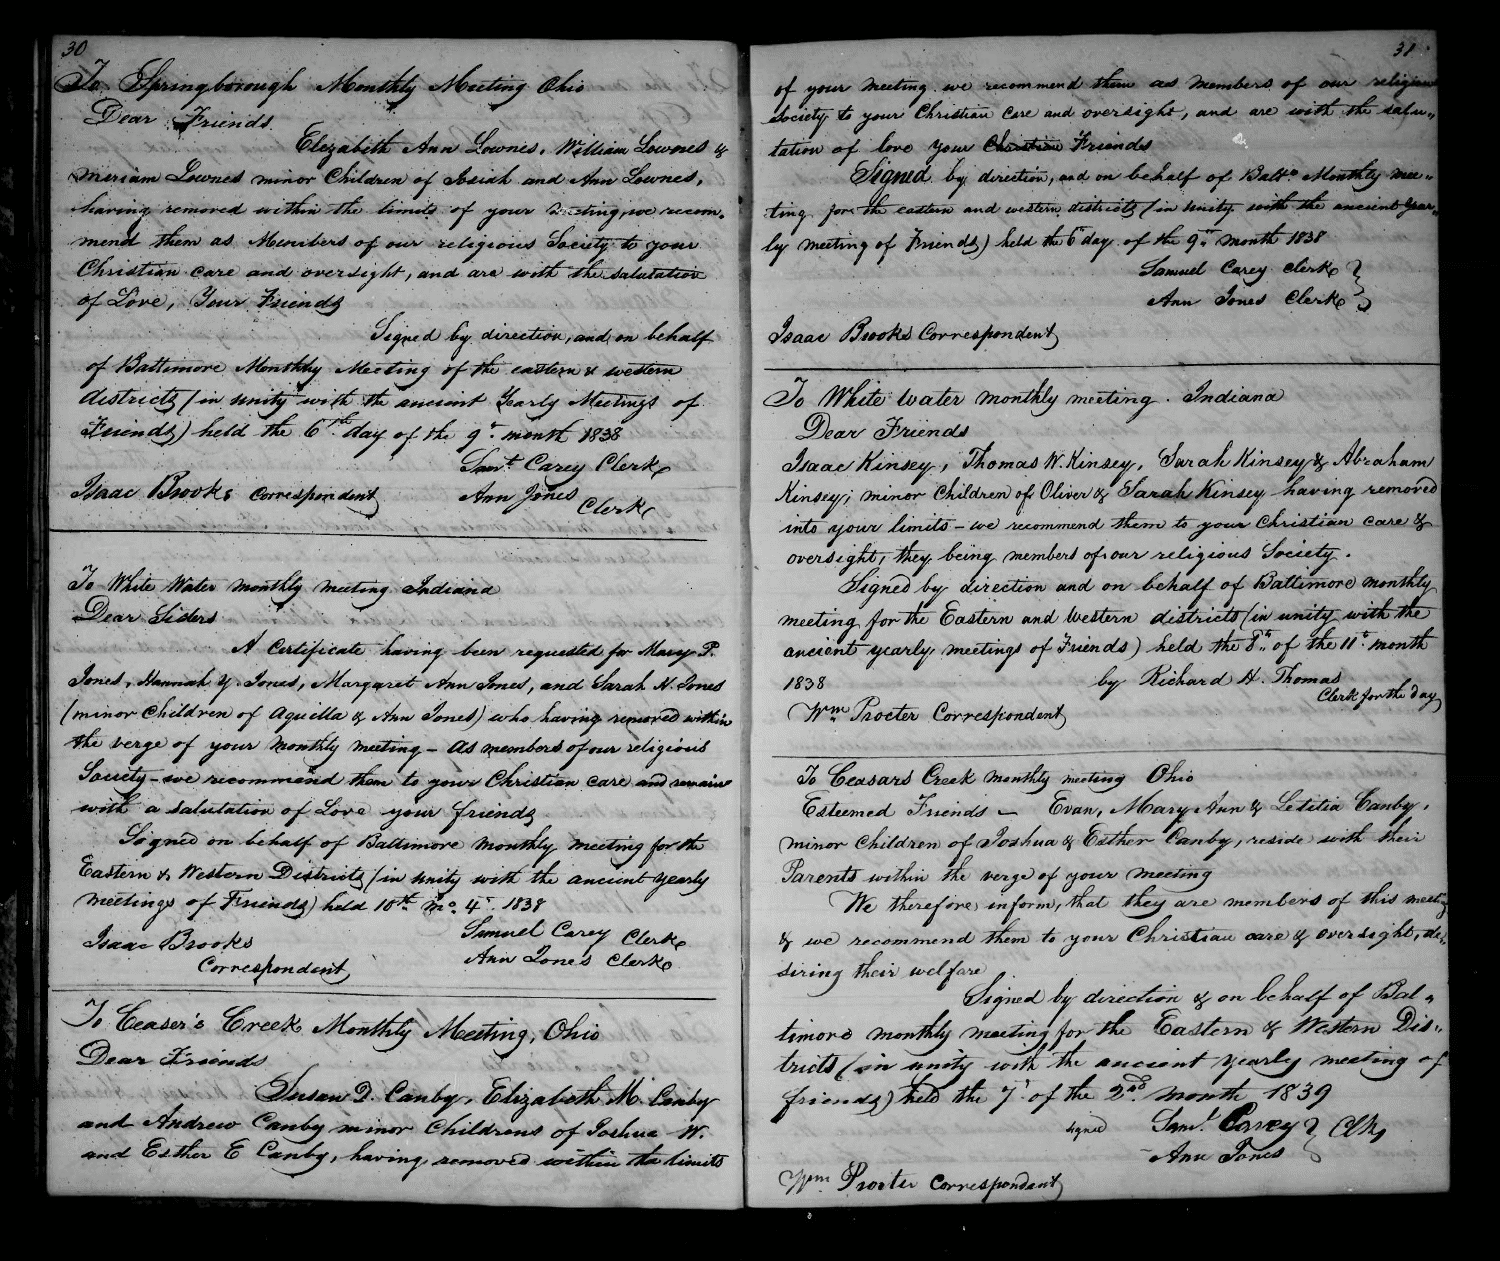 30
To Springborough Monthly Meeting Ohio
Dear Friends
Elizabeth Ann Lownes, William Lownes &
Meriam Lownes minor Children of Josiah and Ann Lownes,
having removed within the limits of your Meeting, we recom-
mend them as Members of our religious Society to your
Christian care and oversight, and are with the salutation
of Love, Your Friends
Signed by direction, and on behalf
of Baltimore Monthly Meeting of the eastern & western
districts (in unity with the ancient Yearly Meetings of
Friends) held the 6th day of the 9th month 1838
Saml Carey Clerk
Isaac Brooks correspondent
Ann Jones
Clerk
To White Water monthly meeting Indiana
Dear Sisters
A Certificate having been requested for Mary P.
Jones, Hannah Y. Jones, Margaret Ann Jones, and Sarah H. Jones
(minor Children of Aquilla & Ann Jones) who having removed within
the verge of your monthly meeting - as members of our religious
Society - we recommend them to your Christian care and remain
with a salutation of Love your friends
Signed on behalf of Baltimore monthly meeting for the
Eastern & Western Districts (in unity with the ancient yearly
meetings of Friends) held 10th mo. 4th 1838
Samuel Carey Clerk
Isaac Brooks
Ann Jones Clerk
Correspondent
To Ceaser's Creek Monthly Meeting, Ohio
Dear Friends
Susan D. Canby, Elizabeth M. Canby
and Andrew Canby minor Childrens of Joshua W.
and Esther E Canby, having removed within the limits
31
of your meeting we recommend them as members of our religious
Society to your Christian care and oversight, and are with the salu-
tation of love your Christian Friends
Signed by direction, and on behalf of Balto Monthly mee-
ting for the eastern and western districts (in unity with the ancient year-
ly meeting of Friends) held the 6th day of the 9th month 1838
Samuel Carey Clerk
Ann Jones Clerk
Isaac Brooks Correspondent
To White water monthly meeting. Indiana
Dear Friends
Isaac Kinsey, Thomas W. Kinsey, Sarah Kinsey & Abraham
Kinsey, minor Children of Oliver & Sarah Kinsey having removed
into your limits - we recommend them to your Christian care &
oversight, they being members of our religious Society.
Signed by direction and on behalf of Baltimore monthly
meeting for the Eastern and Western districts (in unity with the
ancient yearly meetings of Friends) held the 8th of the 11th month
1838 by Richard H. Thomas
Clerk for the day
Wm Procter Correspondent
To Ceasars Creek monthly meeting Ohio
Esteemed Friends - Evan, Mary Ann & Letitia Canby,
minor Children of Joshua & Esther Canby, reside with their
Parents within the verge of your meeting
We therefore inform, that they are members of this meeting
& we recommend them to your Christian care & oversight, de-
siring their welfare
Signed by direction & on behalf of Bal-
timore monthly meeting for the Eastern & Western Dis-
tricts (in unity with the ancient yearly meeting of
friends) held the 7th of the 2nd month 1839
signed Saml Carey Clks
Ann Jones
Wm Procter Correspondent